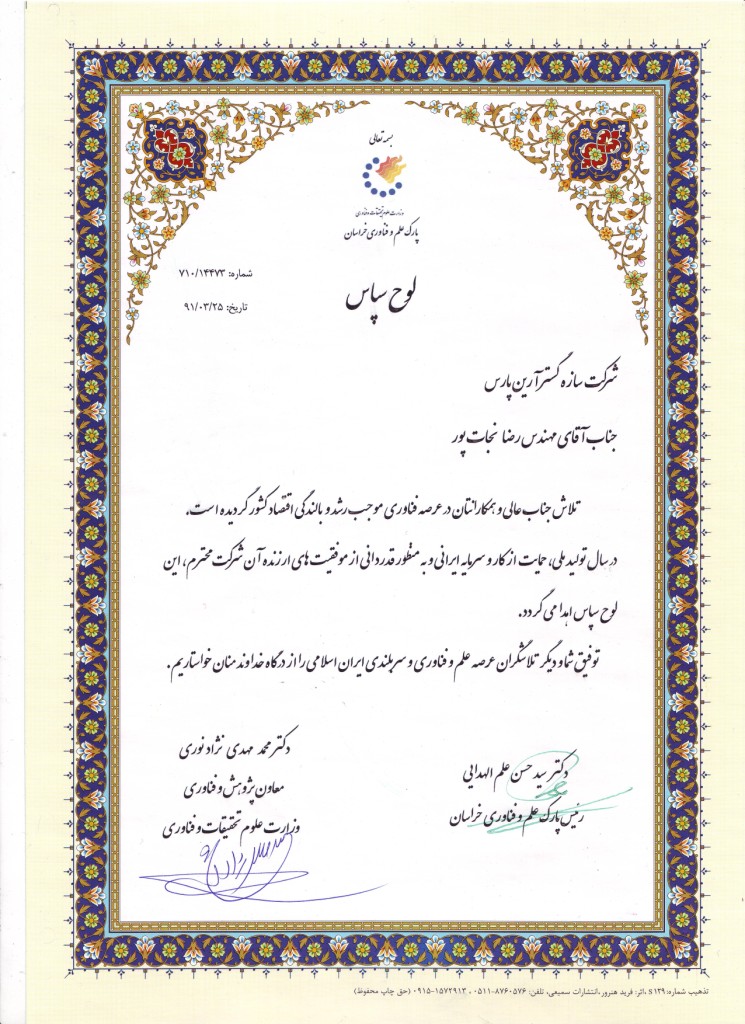 بسمه تعالی
وزارت علوم تحقیقات و فناوری
پارک علم و فناوری خراسان
شماره: ۷۱۰/۱۴۴۷۳
تاریخ: ۹۱/۰۳/۲۵
لوح سپاس
شرکت سازه گستر آرین پارس
جناب آقای مهندس رضا نجات پور
تلاش جناب عالی و همکارانتان در عرصه فناوری موجب رشد و بالندگی اقتصاد کشور گردیده است.
در سال تولید ملی، حمایت از کار و سرمایه ایرانی و به منظور قدردانی از موفقیت های ارزنده آن شرکت محترم، این
لوح سپاس اهدا می گردد.
توفیق شما و دیگر تلاشگران عرصه علم و فناوری و سربلندی ایران اسلامی را از درگاه خداوند منان خواستاریم.
دکتر سید حسن علم الهدایی
رئیس پارک علم و فناوری خراسان
دکتر محمد مهدی نژاد نوری
معاون پژوهش و فناوری
وزارت علوم تحقیقات و فناوری
تذهیب شماره: S ۱۳۹ ،اثر: فرید هنرور ،انتشارات سمیعی، تلفن: ۸۷۶۰۵۷۶-۰۵۱۱ ، ۱۵۷۲۹۱۳-۰۹۱۵ (حق چاپ محفوظ)